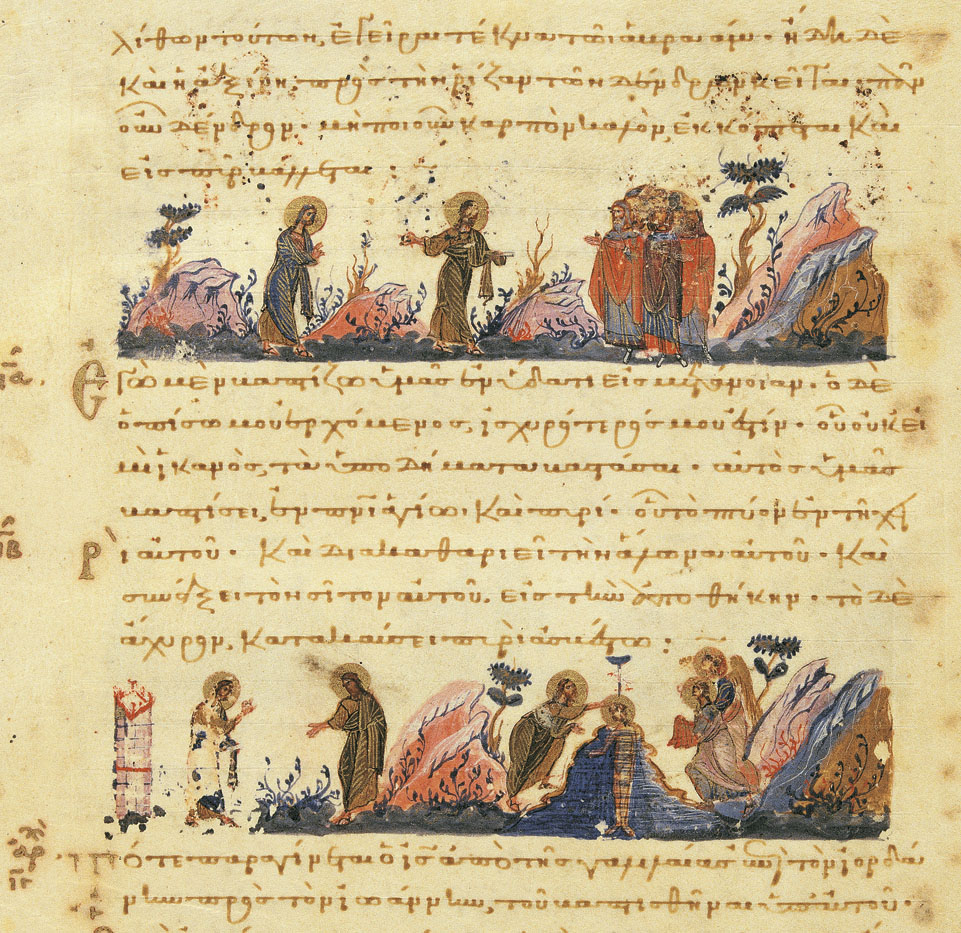 λίθων τούτων, ἐγεῖραι τέκνα τῶ ἀβραάμ· ἤδη δὲ
καὶ ἡ ἀξίνη, πρὸς τὴν ῥίζαν τῶν δένδρων κεῖται· πᾶν
οὖν δένδρον· μὴ ποιοῦν καρπὸν καλὸν, ἐκκόπτεται καὶ
εἰς πῦρ βάλλεται:
Ἐγὼ μὲν βαπτίζω ὑμᾶς ἐν ὕδατι εἰς μετάνοιαν· ὁ δὲ
ὀπίσω μου ἐρχόμενος, ἰσχυρότερός μου ἐστίν· οὗ οὐκ εἰ
μὶ ἱκανὸς, τὰ ὑποδήματα βαστάσαι· αὐτὸς ὑμᾶς
βαπτίσει, ἐν πνι ἁγίω καὶ πυρί· οὗ τὸ πτύον ἐν τῆ χει
ρὶ αὐτοῦ· καὶ διακαθαριεῖ τὴν ἅλωνα αὐτοῦ· καὶ
συνάξει τὸν σῖτον αὐτοῦ, εἰς τὴν ἀποθήκην· τὸ δὲ
ἄχυρον, κατακαύσει πυρὶ ἀσβέστω:
Τότε παραγίνεται ὁ ις ἀπὸ τῆς γαλιλαίας ἐπὶ τὸν ἰορδά
νην πρὸς τὸν ἰωάννην, τοῦ βαπτισθῆναι ὑπ' αὐτοῦ·